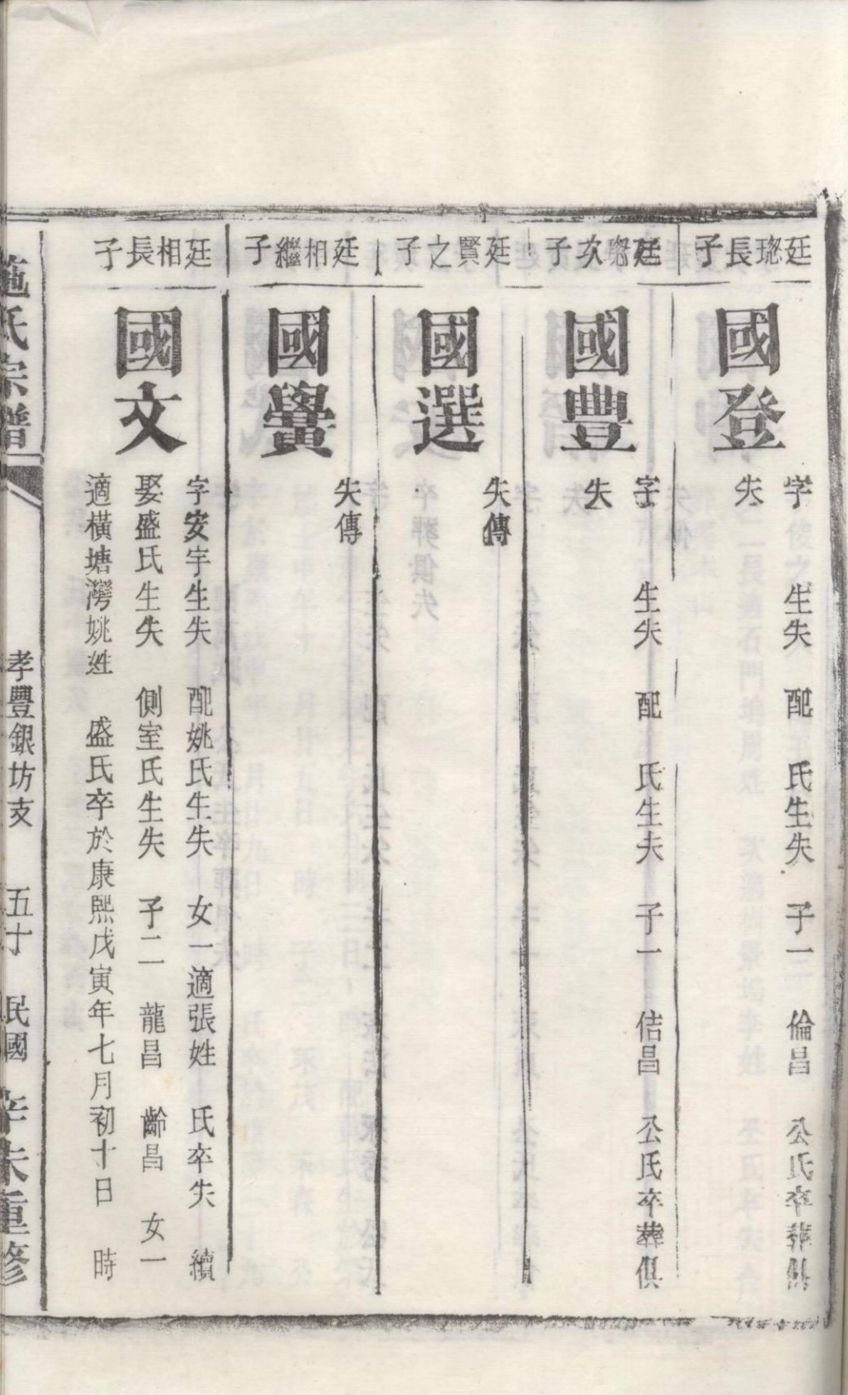 廷璁長子
國登
字　生失　配　氏生失　子一　倫昌　公氏卒葬俱
失
廷璁次子
國豊
字　生失　配　氏生失　子一　佶昌　公氏卒葬俱
失
廷賢之子
國選
失傳
廷相繼子
國黌
失傳
廷相長子
國文
字安宇生失　配姚氏生失　女一適張姓　氏卒失　續
娶盛氏生失　側室氏生失　子二　龍昌　齡昌　女一
適橫塘灣姚姓　盛氏卒於康熙戊寅年七月初十日　時
施氏宗譜
孝豐銀坊支　五十　民國　辛未重修